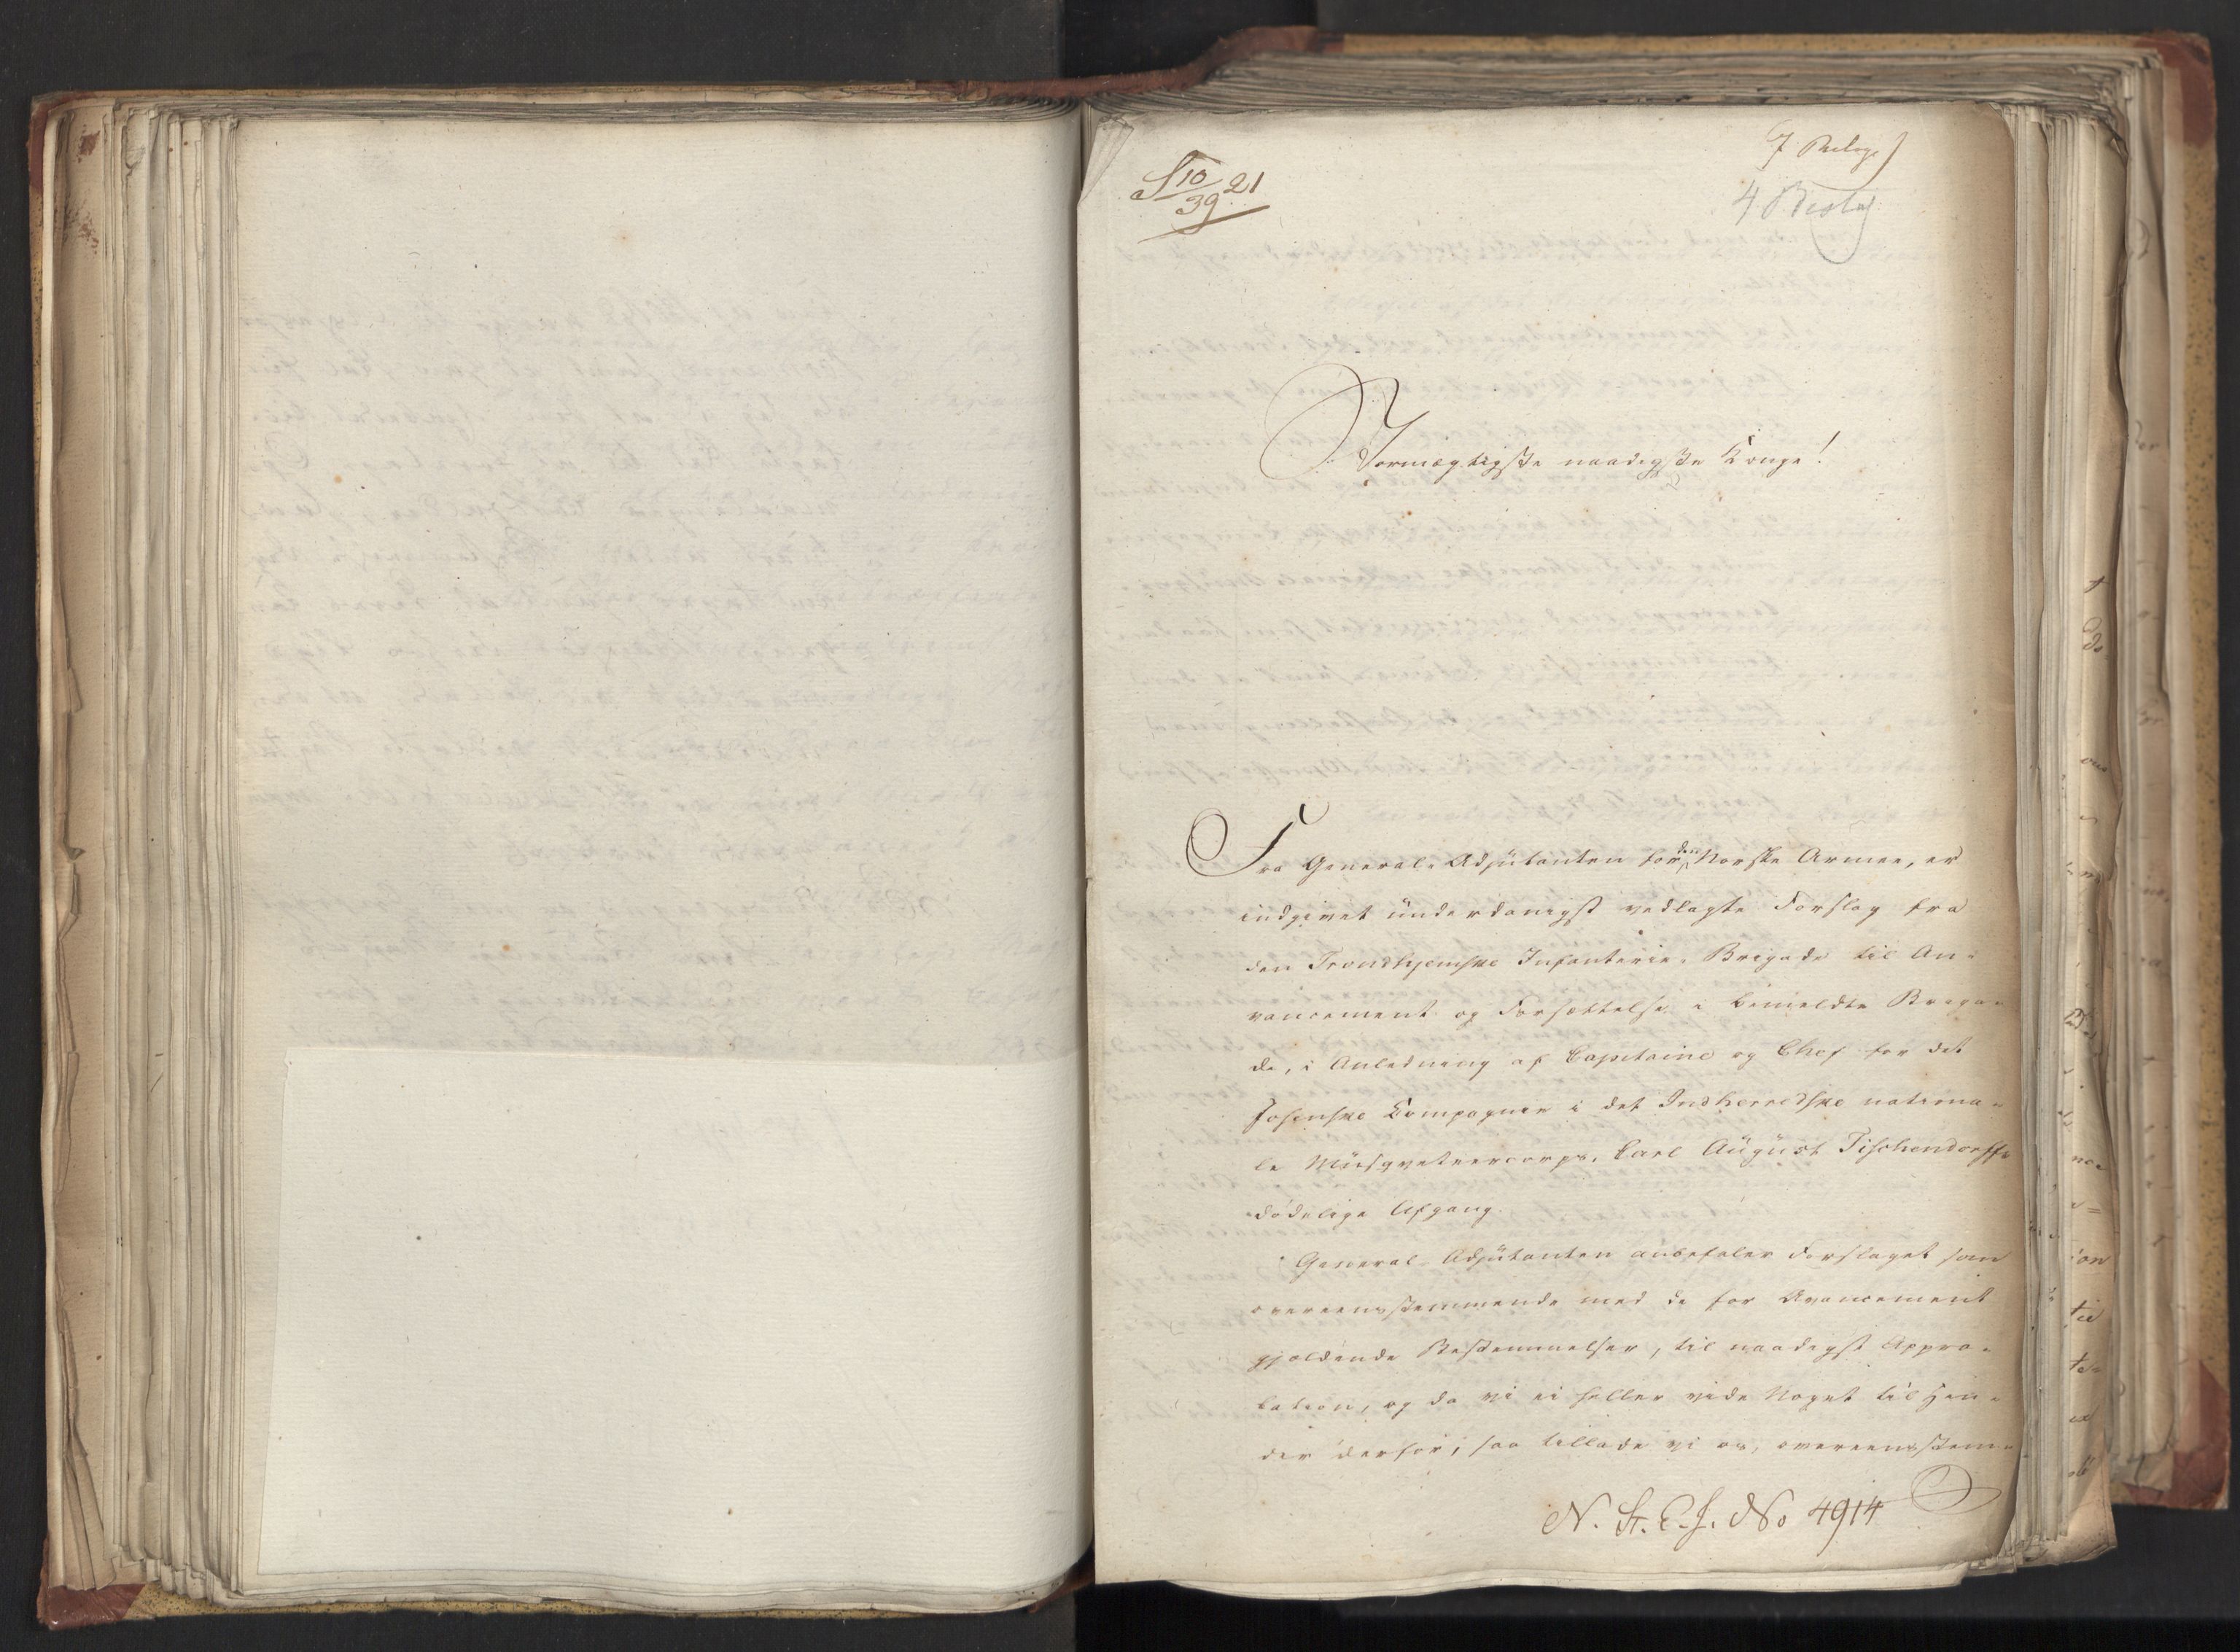 S 10/39 21
7 Bilage
4 Bilag
Stormægtigste naadigste Konge!
Fra General-Adjutanten for den Norske Armee, er
indgivet underdanigst vedlagte Forslag fra
den Trondhjemske Infanterie-Brigade til An-
vancement og Forsættelse i bemeldte Briga-
de, i Anledning af Capitaine og Chef for det
Fosenske Compagnie i det Indherredske nationa-
le Musqveteercorps, Carl August Tischendorffs
dødelige Afgang.
General-Adjutanten anbefaler Forslaget som
overeensstemmende med de for Avancement
gjældende Bestemmelser, til naadigst Appro-
bation, og da vi ei heller vide Noget til Hin-
der derfor, saa tillade vi os, overeensstem-
N. St. E. J. No 4914